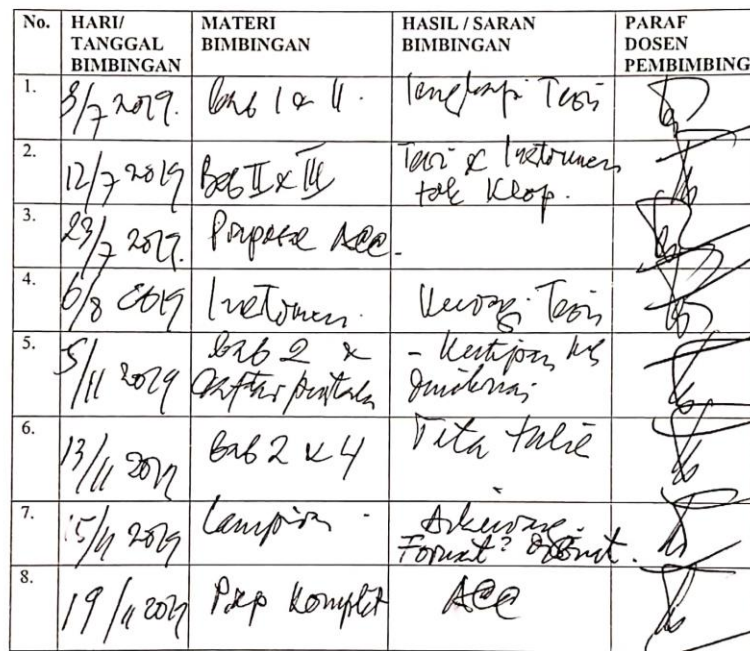 No. HARI/ TANGGAL BIMBINGAN MATERI BIMBINGAN HASIL / SARAN BIMBINGAN PARAF DOSEN PEMBIMBING
1. 3/7 2019. Bab I & II. Lengkapi Teori
2. 12/7 2019 Bab II & III Teori & Instrumen
tdk Klop.
3. 23/7 2019. Proposal Acc.
4. 6/8 2019 Instrumen. Kurangi Teori
5. 5/11 2019 Bab 2 &
Daftar pustaka - Kutipan
6. 13/11 2019 Bab 2 & 4 Tata tulis
7. 15/11 2019 Lampiran
Format?
8. 19/11 2019 Komplit Acc